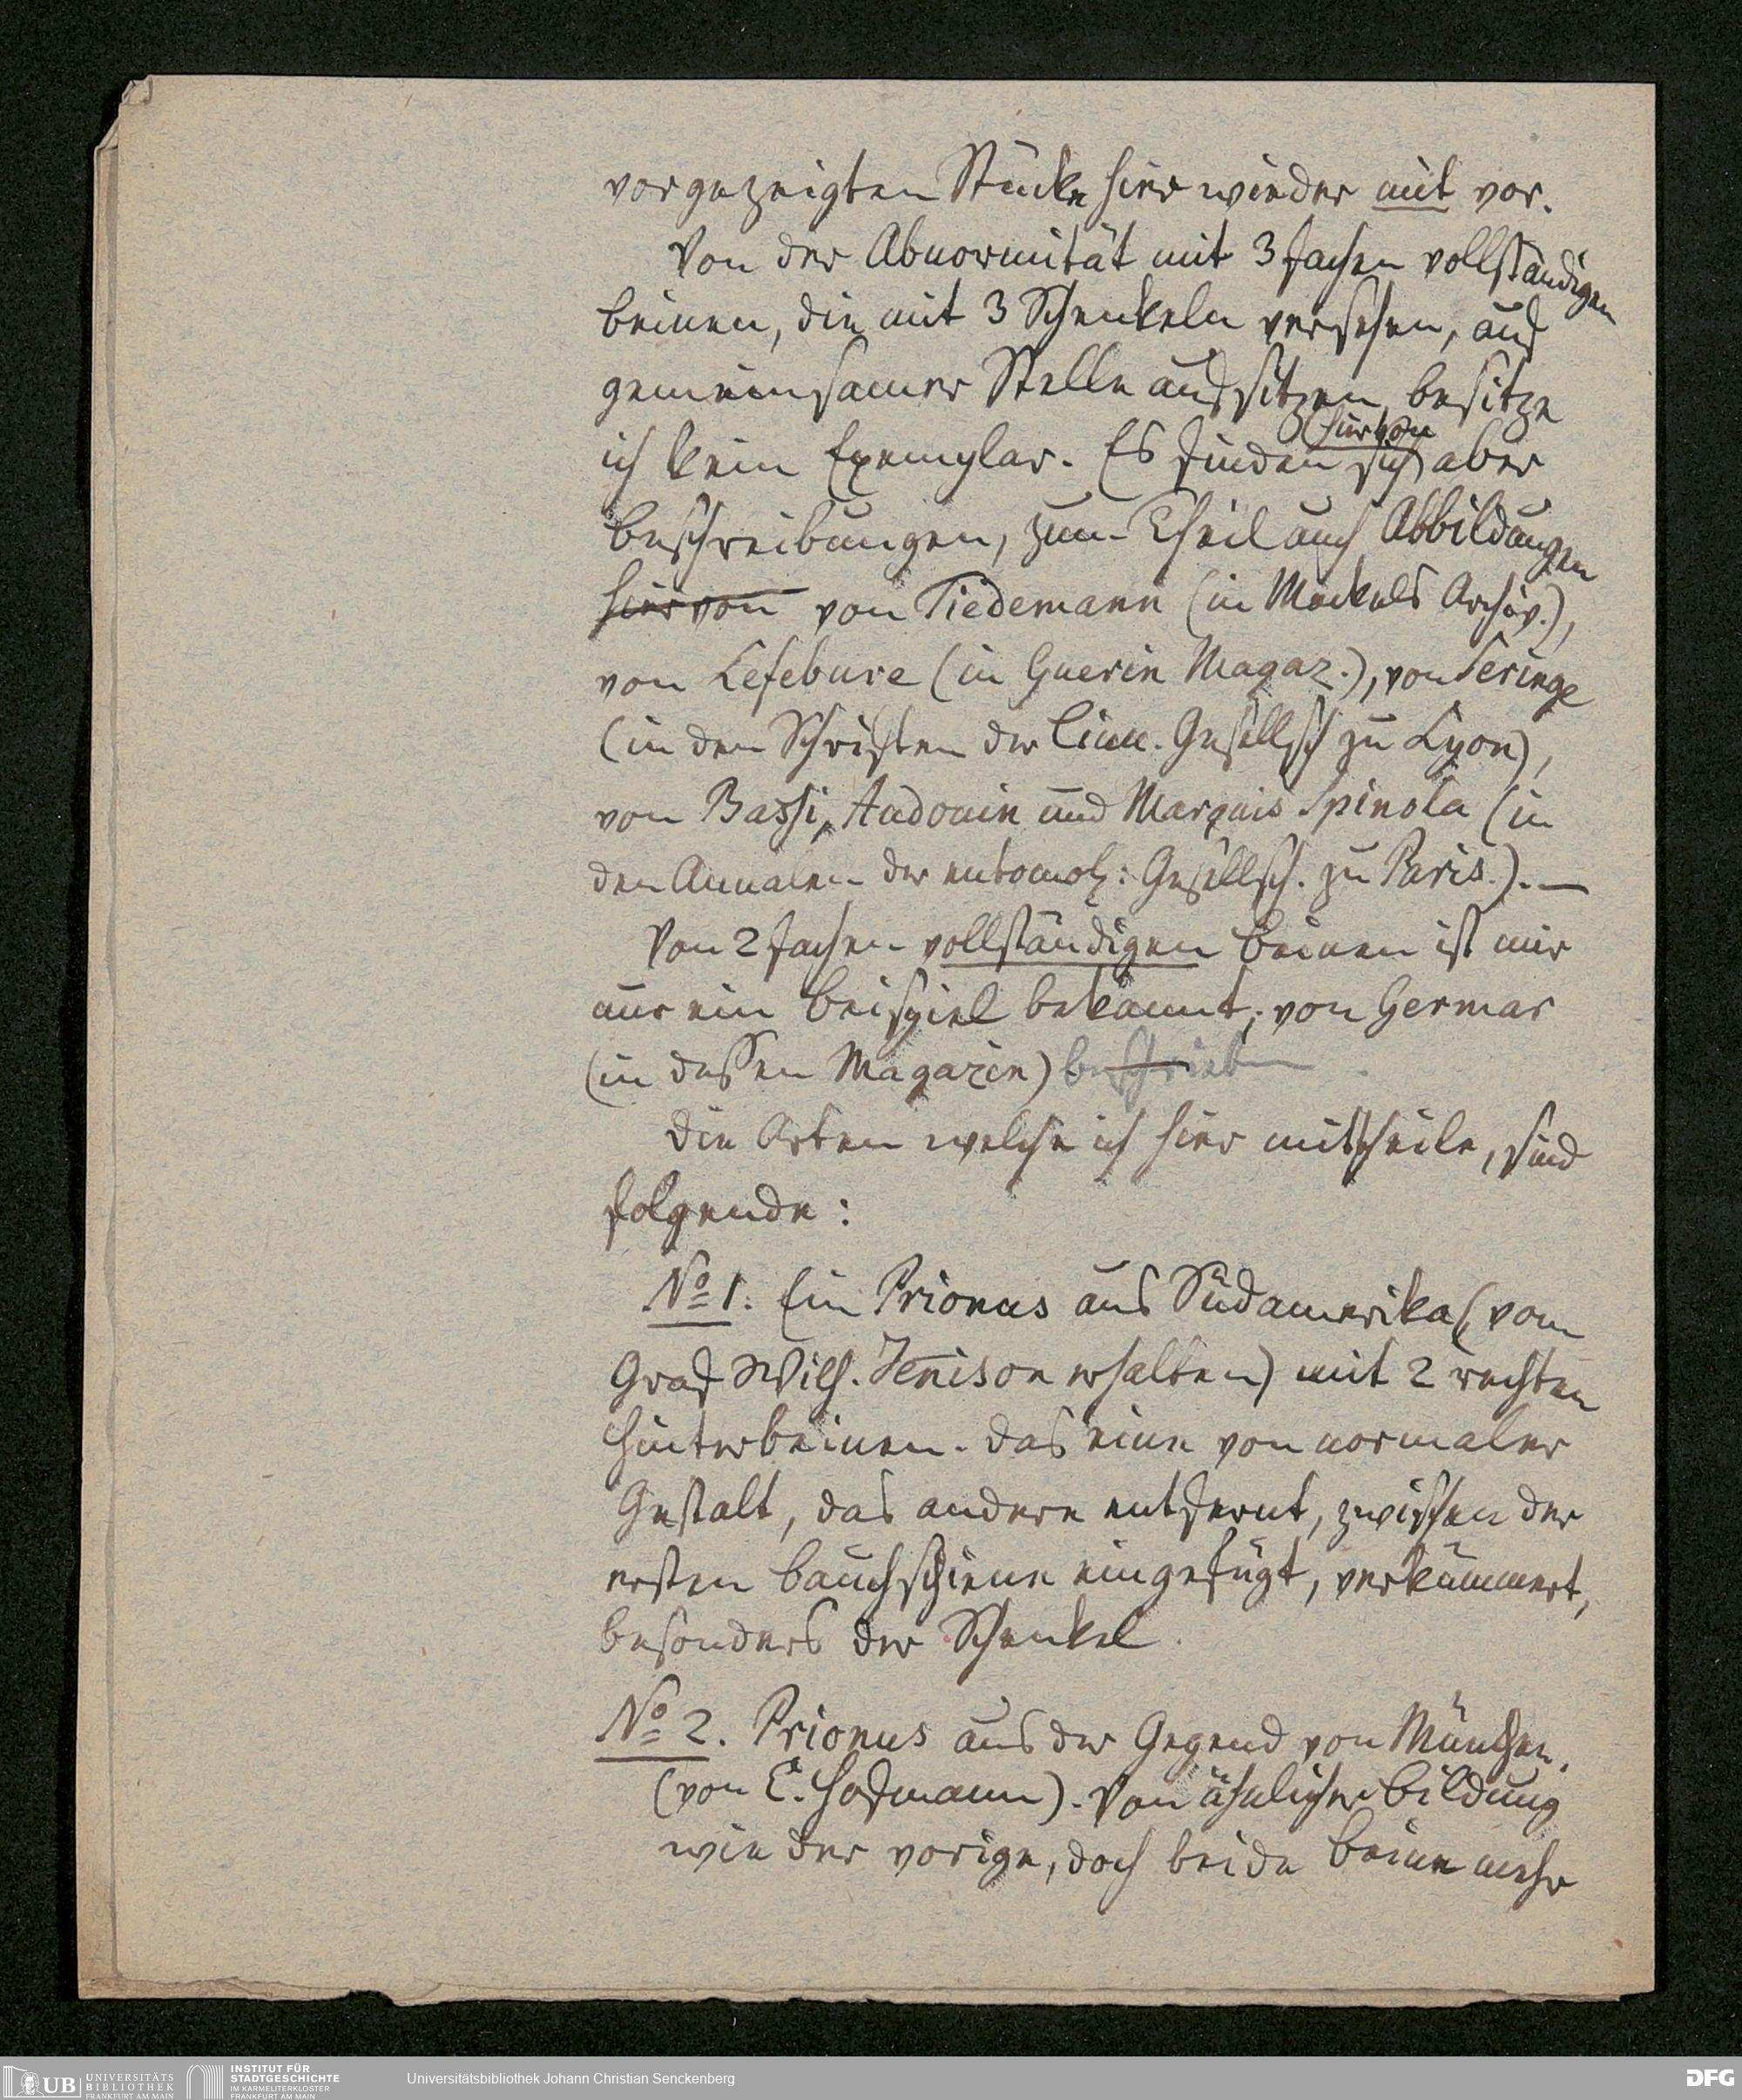 vorgezeigten Stücke hier wieder mit vor.
Von der Abnormität mit 3fachen vollständigen
Beinen, die mit 3 Schenkeln versehen, auf
gemeinsamer Stelle aufsitzen besitze
hiervon
ich kein Exemplar. Es finden sich aber
Beschreibungen, zum Theil auch Abbildungen
hiervon von Tiedemann (in Meckels Archiv.),
von Lefebure (in Guerin Magaz.), von Seringe
(in den Schriften der Linn. Gesellsch zu Lyon),
von Bassi, Audouin und Marquis Spinola (in
den Annalen der entomol: Gesellsch. zu Paris.). —
Von 2fachen vollständigen Beinen ist mir
nur ein Beispiel bekannt, von Germar
(in dessen Magazin) beschrieben.
Die Arten welche ich hier mittheile, sind
folgende:
No 1. Ein Prionus aus Südamerika (vom
Graf Wilh. Jenison erhalten) mit 2 rechten
Hinterbeinen. Das eine von normaler
Gestalt, das andere entfernt, zwischen der
ersten Bauchschiene eingefügt, verkümmert,
besonders der Schenkel.
No 2. Prionus aus der Gegend von München.
(von C. Hofmann). Von ähnlicher Bildung
wie der vorige, doch beide Beine mehr
UB UNIVERSITÄTS BIBLIOTHEK FRANKFURT AM MAIN
INSTITUT FÜR STADTGESCHICHTE IM KARMELITERKLOSTER FRANKFURT AM MAIN
Universitätsbibliothek Johann Christian Senckenberg
DFG